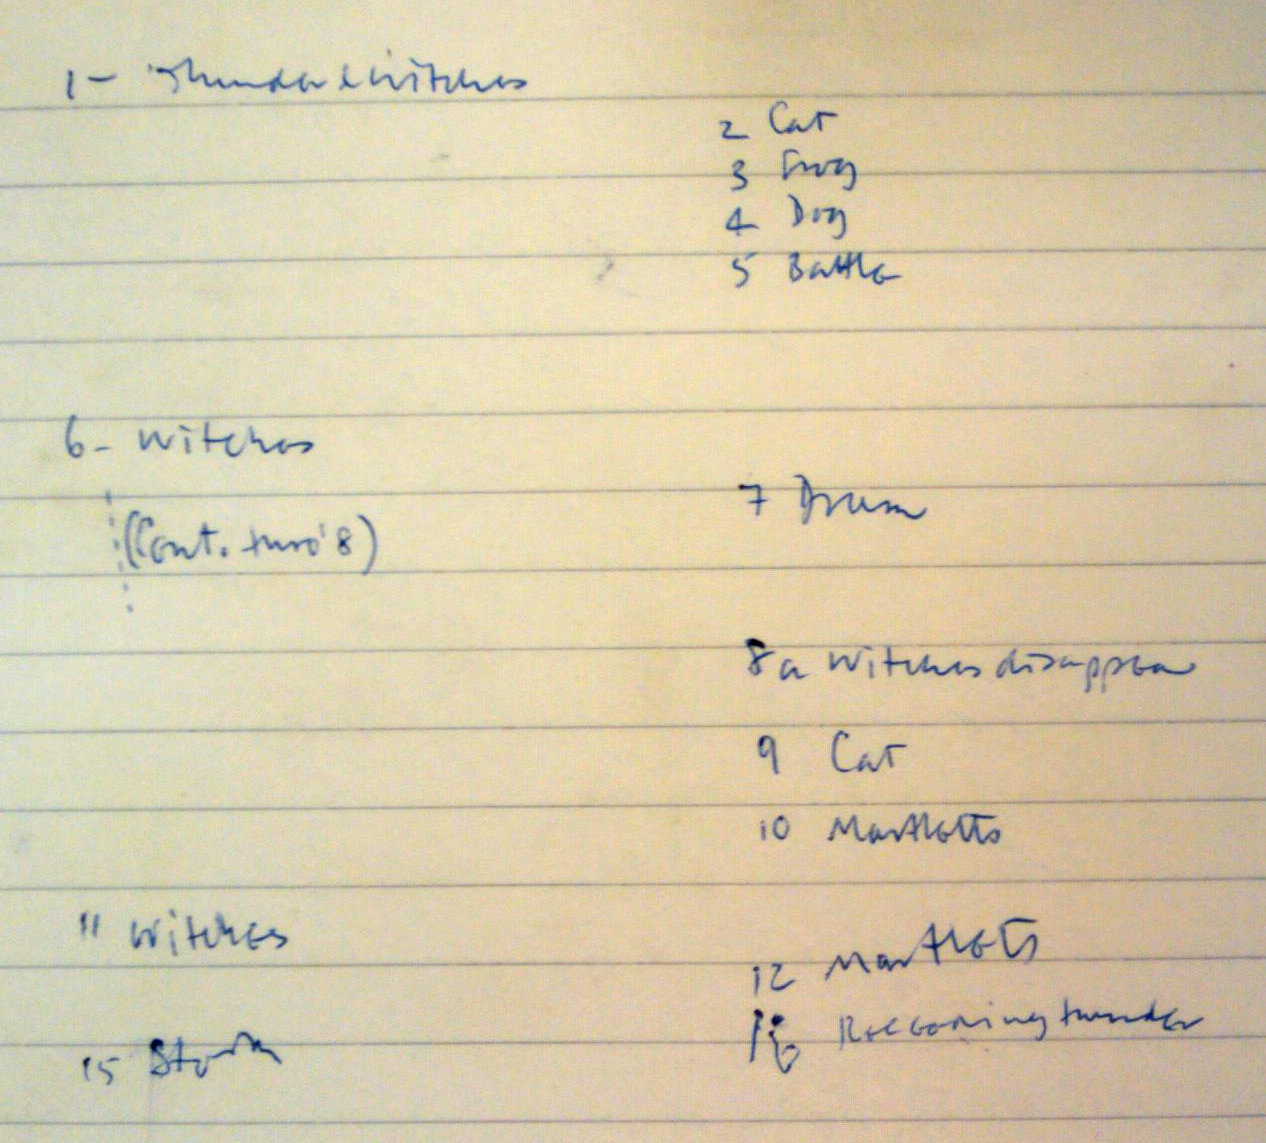 1- Thunder & Witches
2 Cat
3 Frog
4 Dog
5 Battle
6- Witches
7 Drum
(Cont. thro' 8)
8a Witches disappear
9 Cat
10 Martletts
11 Witches
12 Martlets
16 Receding thunder
15 Storm